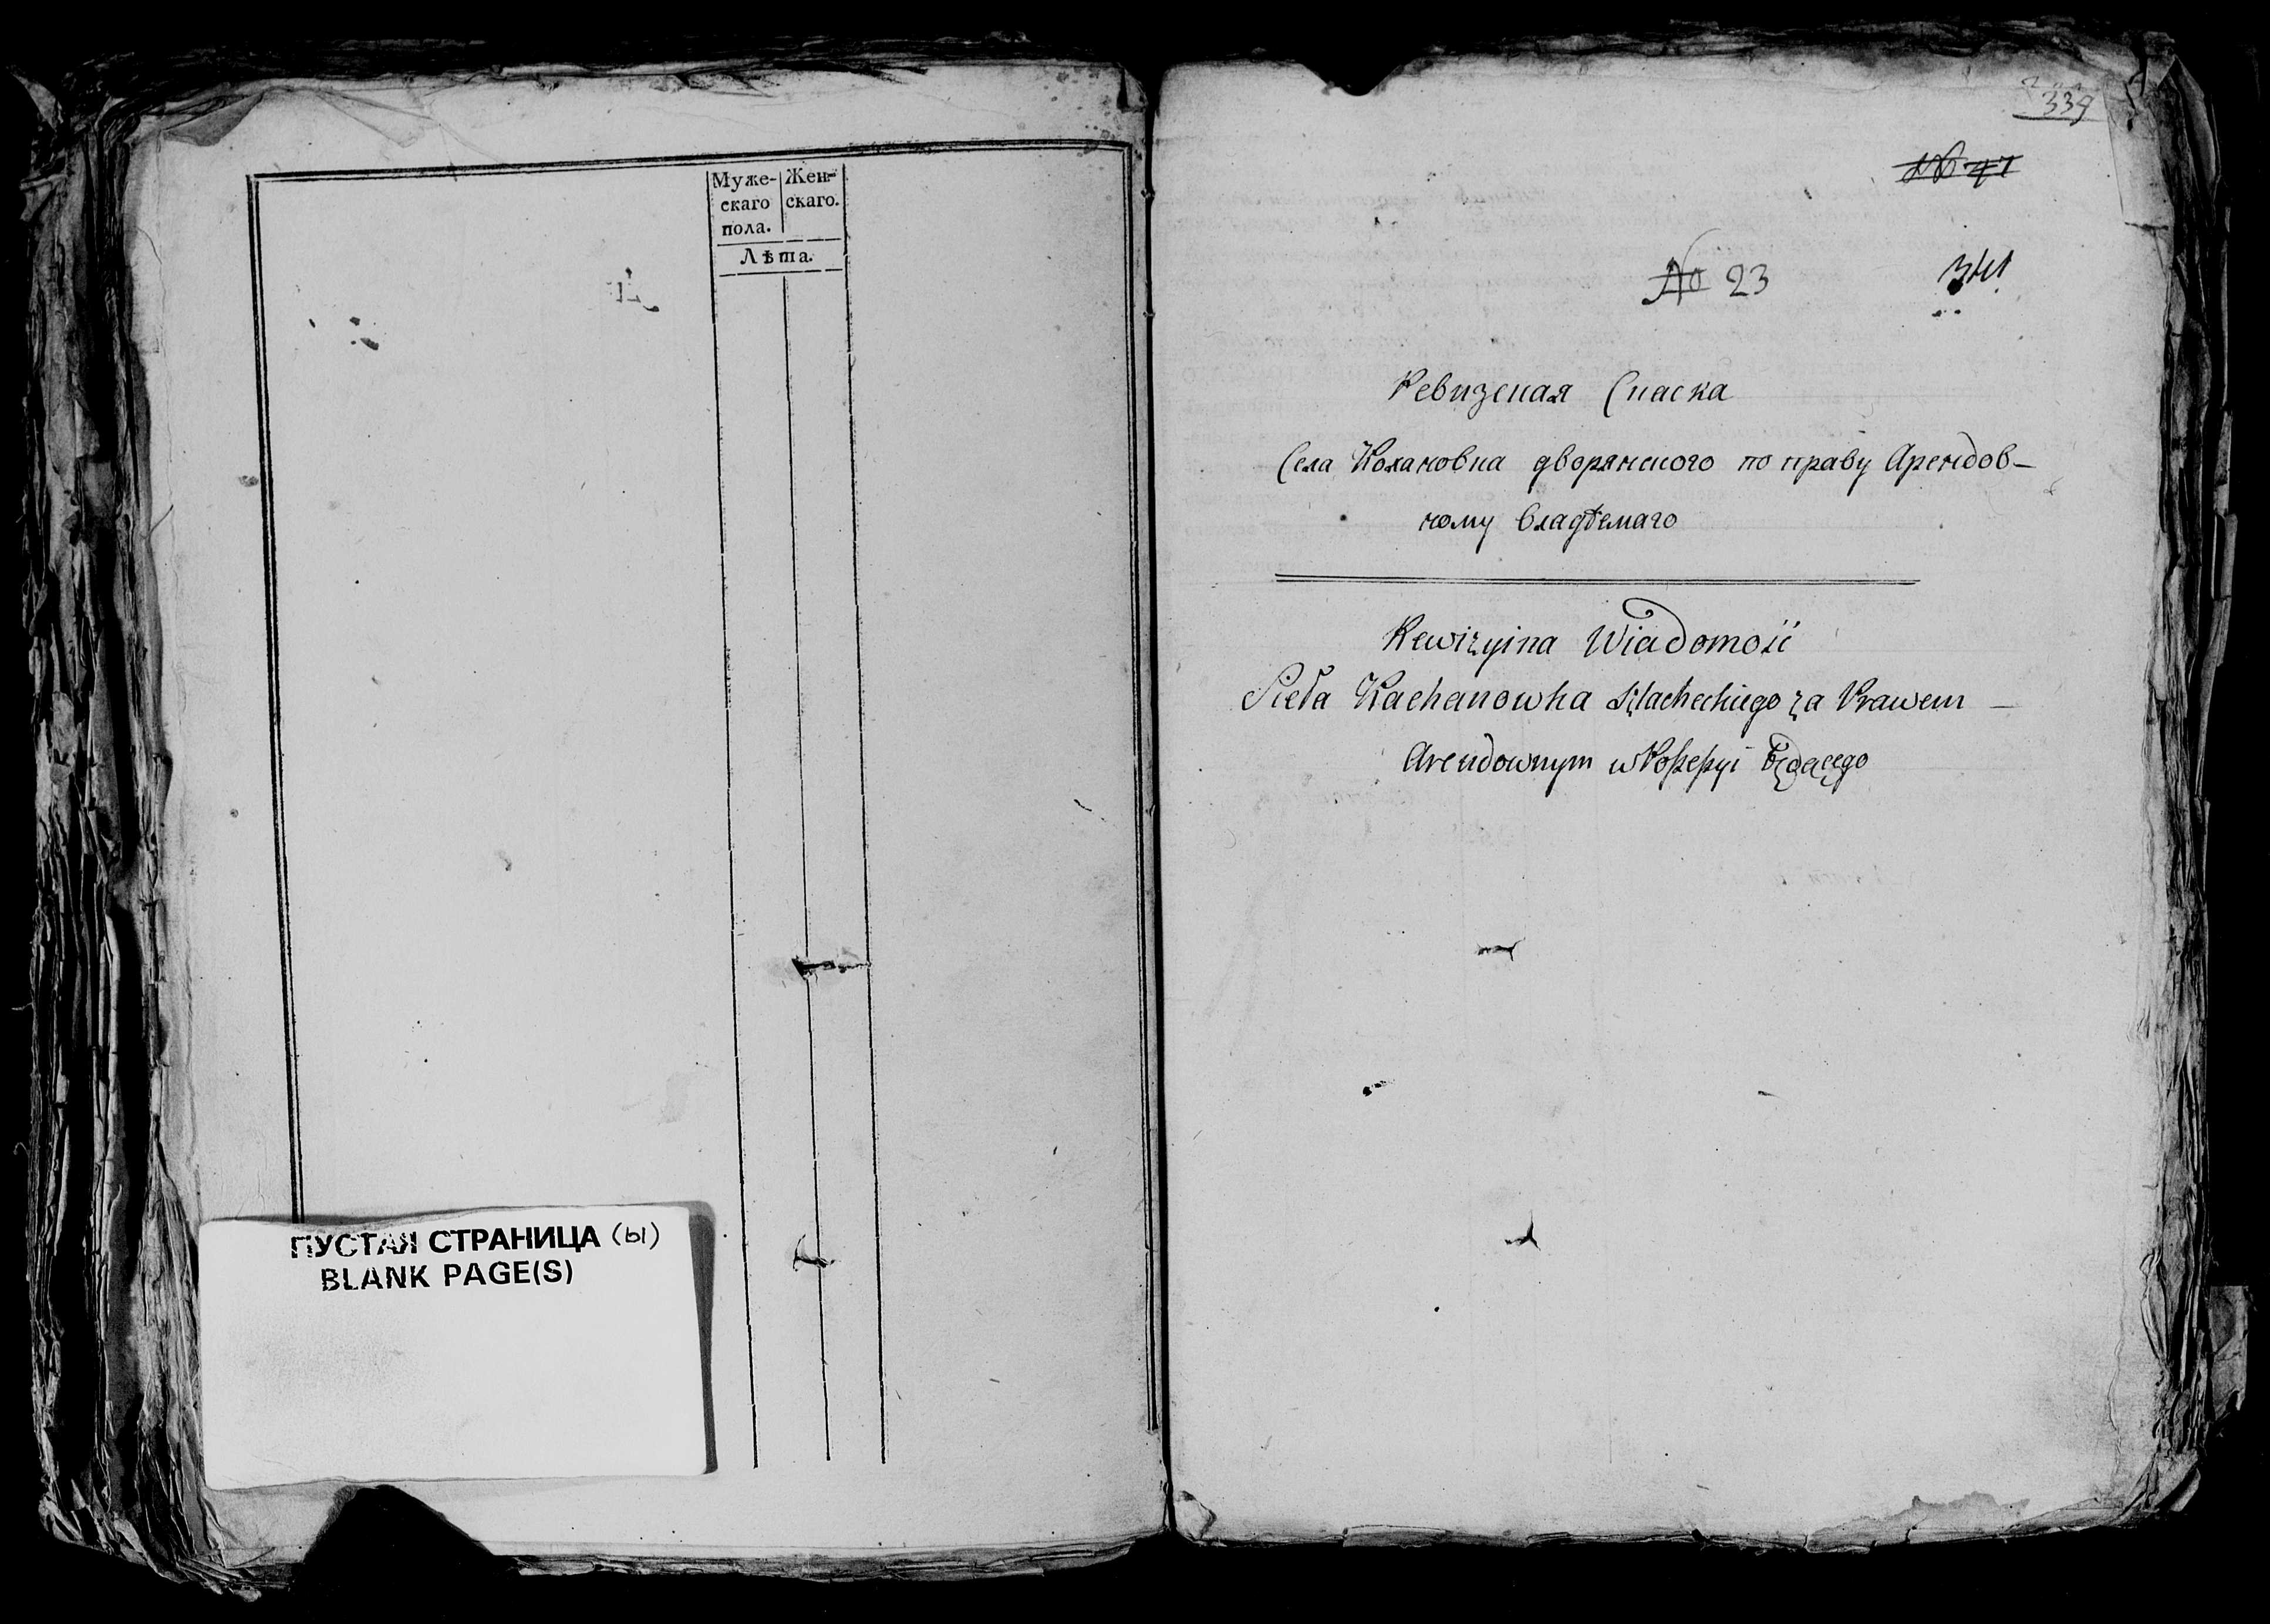 Муже- Жен-
скаго скаго.
пола.
Лѣта.
ПУСТАЯ СТРАНИЦА (ы)
BLANK PAGE(S)
339
№ 41
№ 23
341
Ревизсная Спаска
Села Кохановка дворянского по праву Арендов-
ному владѣемаго
Rewizyina Wiadomość
Sieła Kachanowka Szlacheckiego za Prawem
Arendownym w Possessyi będącego